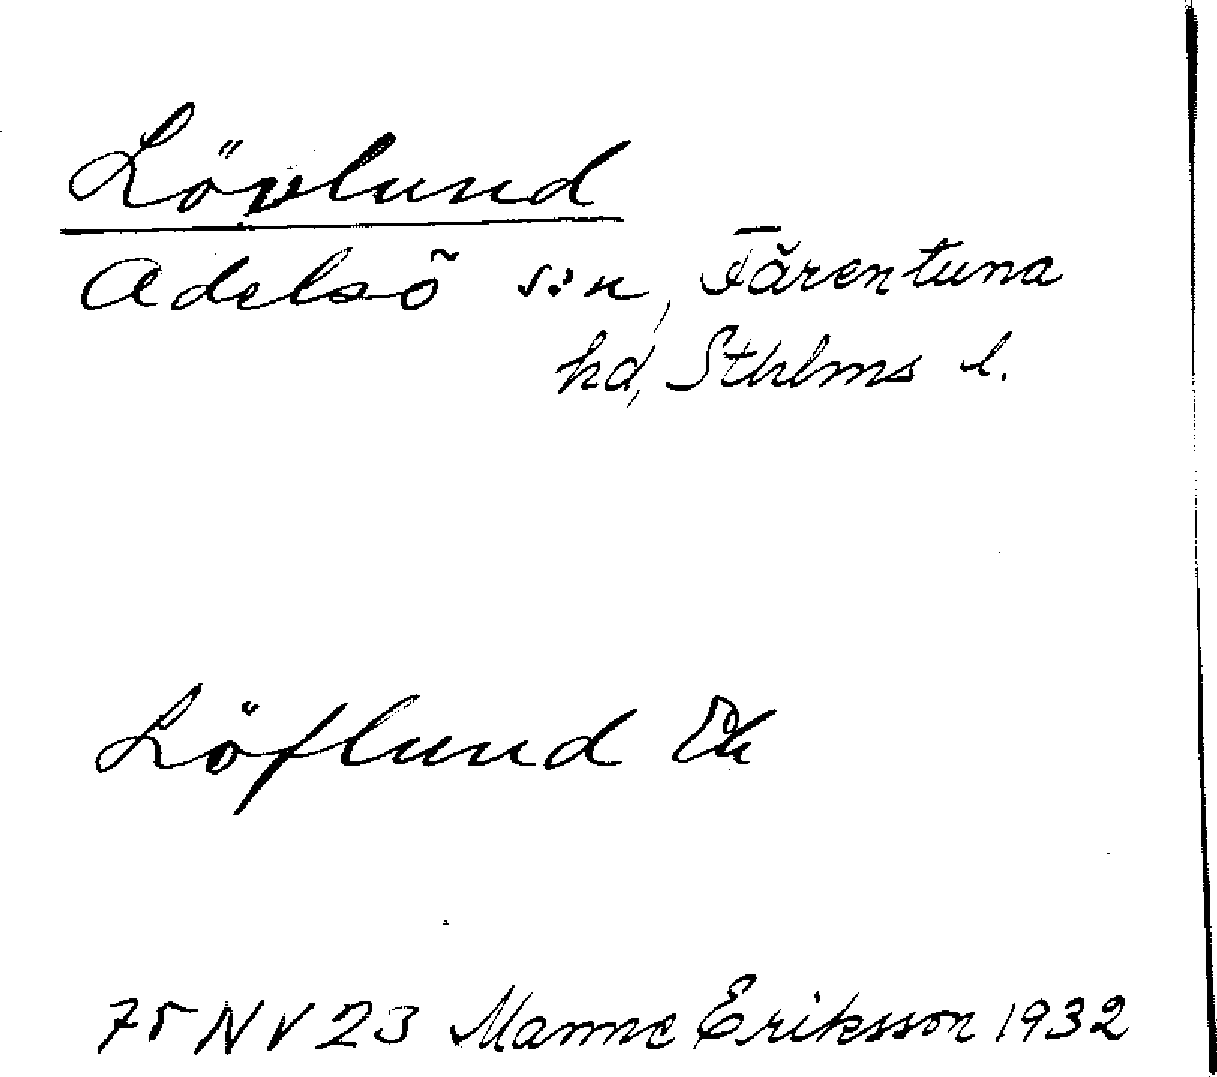 Lövlund
Adelsö s:n, Färentuna
hd, Sthlms l.
Löflund Ek
75 NV 23 Manne Eriksson 1932